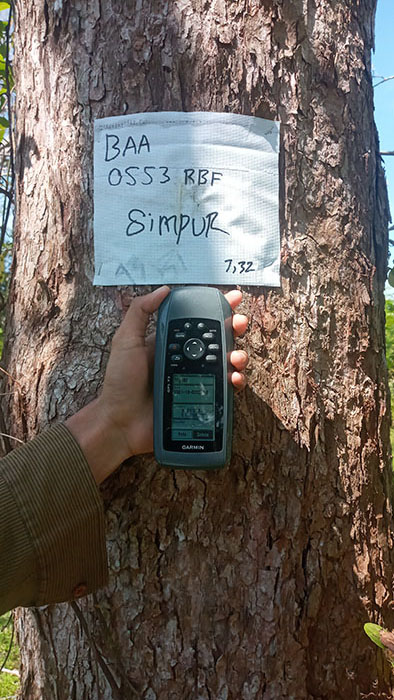 BAA
0553 RBF
SimpuR
7,32
GARMIN